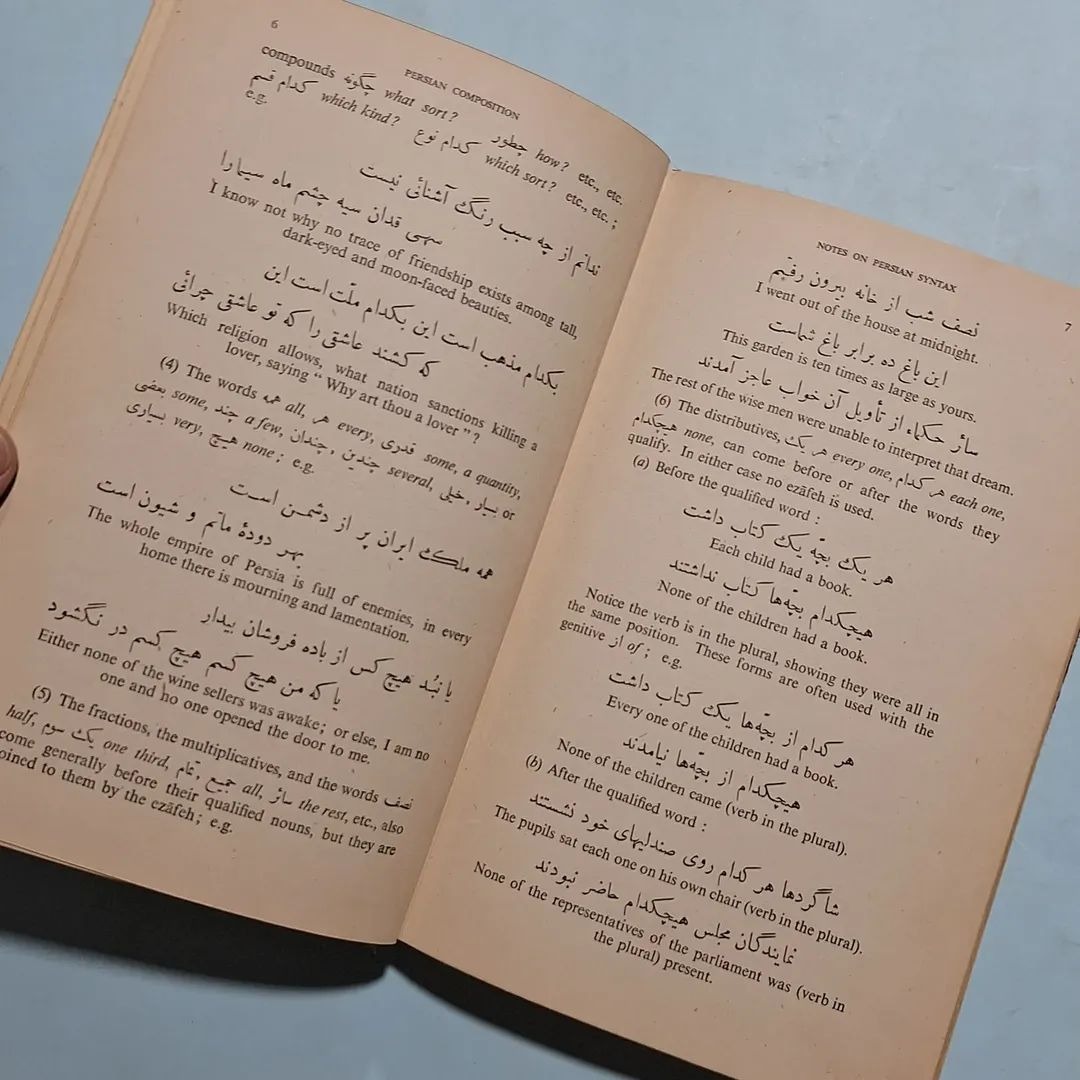 6
PERSIAN COMPOSITION
compounds چگونه what sort? چطور how? etc., etc.
کدام قسم which kind? کدام نوع which sort? etc., etc.;
e.g.
ندانم از چه سبب رنگ آشنائی نیست
سهی قدان سیه چشم ماه سیما را
I know not why no trace of friendship exists among tall,
dark-eyed and moon-faced beauties.
بکدام مذهب است این بکدام ملّت است این
که کشند عاشقی را که تو عاشقی چرائی
Which religion allows, what nation sanctions killing a
lover, saying “Why art thou a lover”?
(4) The words همه all, هر every, قدری some, a quantity,
بعضی some, چند a few, چندین, چندان several, بسیار, خیلی or
بسیاری very, هیچ none; e.g.
همه ملک ایران پر از دشمن است
بهر دودهٔ ماتم و شیون است
The whole empire of Persia is full of enemies, in every
home there is mourning and lamentation.
یا نبُد هیچ کس از باده فروشان بیدار
یا که من هیچ کسم هیچ کسم در نگشود
Either none of the wine sellers was awake; or else, I am no
one and no one opened the door to me.
(5) The fractions, the multiplicatives, and the words نصف
half, یک سوم one third, تمام, جمیع all, سائر the rest, etc., also
come generally before their qualified nouns, but they are
joined to them by the ezāfeh; e.g.
NOTES ON PERSIAN SYNTAX
7
نصف شب از خانه بیرون رفتیم
I went out of the house at midnight.
این باغ ده برابر باغ شماست
This garden is ten times as large as yours.
سائر حکماء از تأویل آن خواب عاجز آمدند
The rest of the wise men were unable to interpret that dream.
(6) The distributives, هر یک every one, هر کدام each one,
هیچکدام none, can come before or after the words they
qualify. In either case no ezāfeh is used.
(a) Before the qualified word:
هر یک بچّه یک کتاب داشت
Each child had a book.
هیچکدام بچّه‌ها کتاب نداشتند
None of the children had a book.
Notice the verb is in the plural, showing they were all in
the same position. These forms are often used with the
genitive از of; e.g.
هر کدام از بچّه‌ها یک کتاب داشت
Every one of the children had a book.
هیچکدام از بچّه‌ها نیامدند
None of the children came (verb in the plural).
(b) After the qualified word:
شاگردها هر کدام روی صندلیهای خود نشستند
The pupils sat each one on his own chair (verb in the plural).
نمایندگان مجلس هیچکدام حاضر نبودند
None of the representatives of the parliament was (verb in
the plural) present.